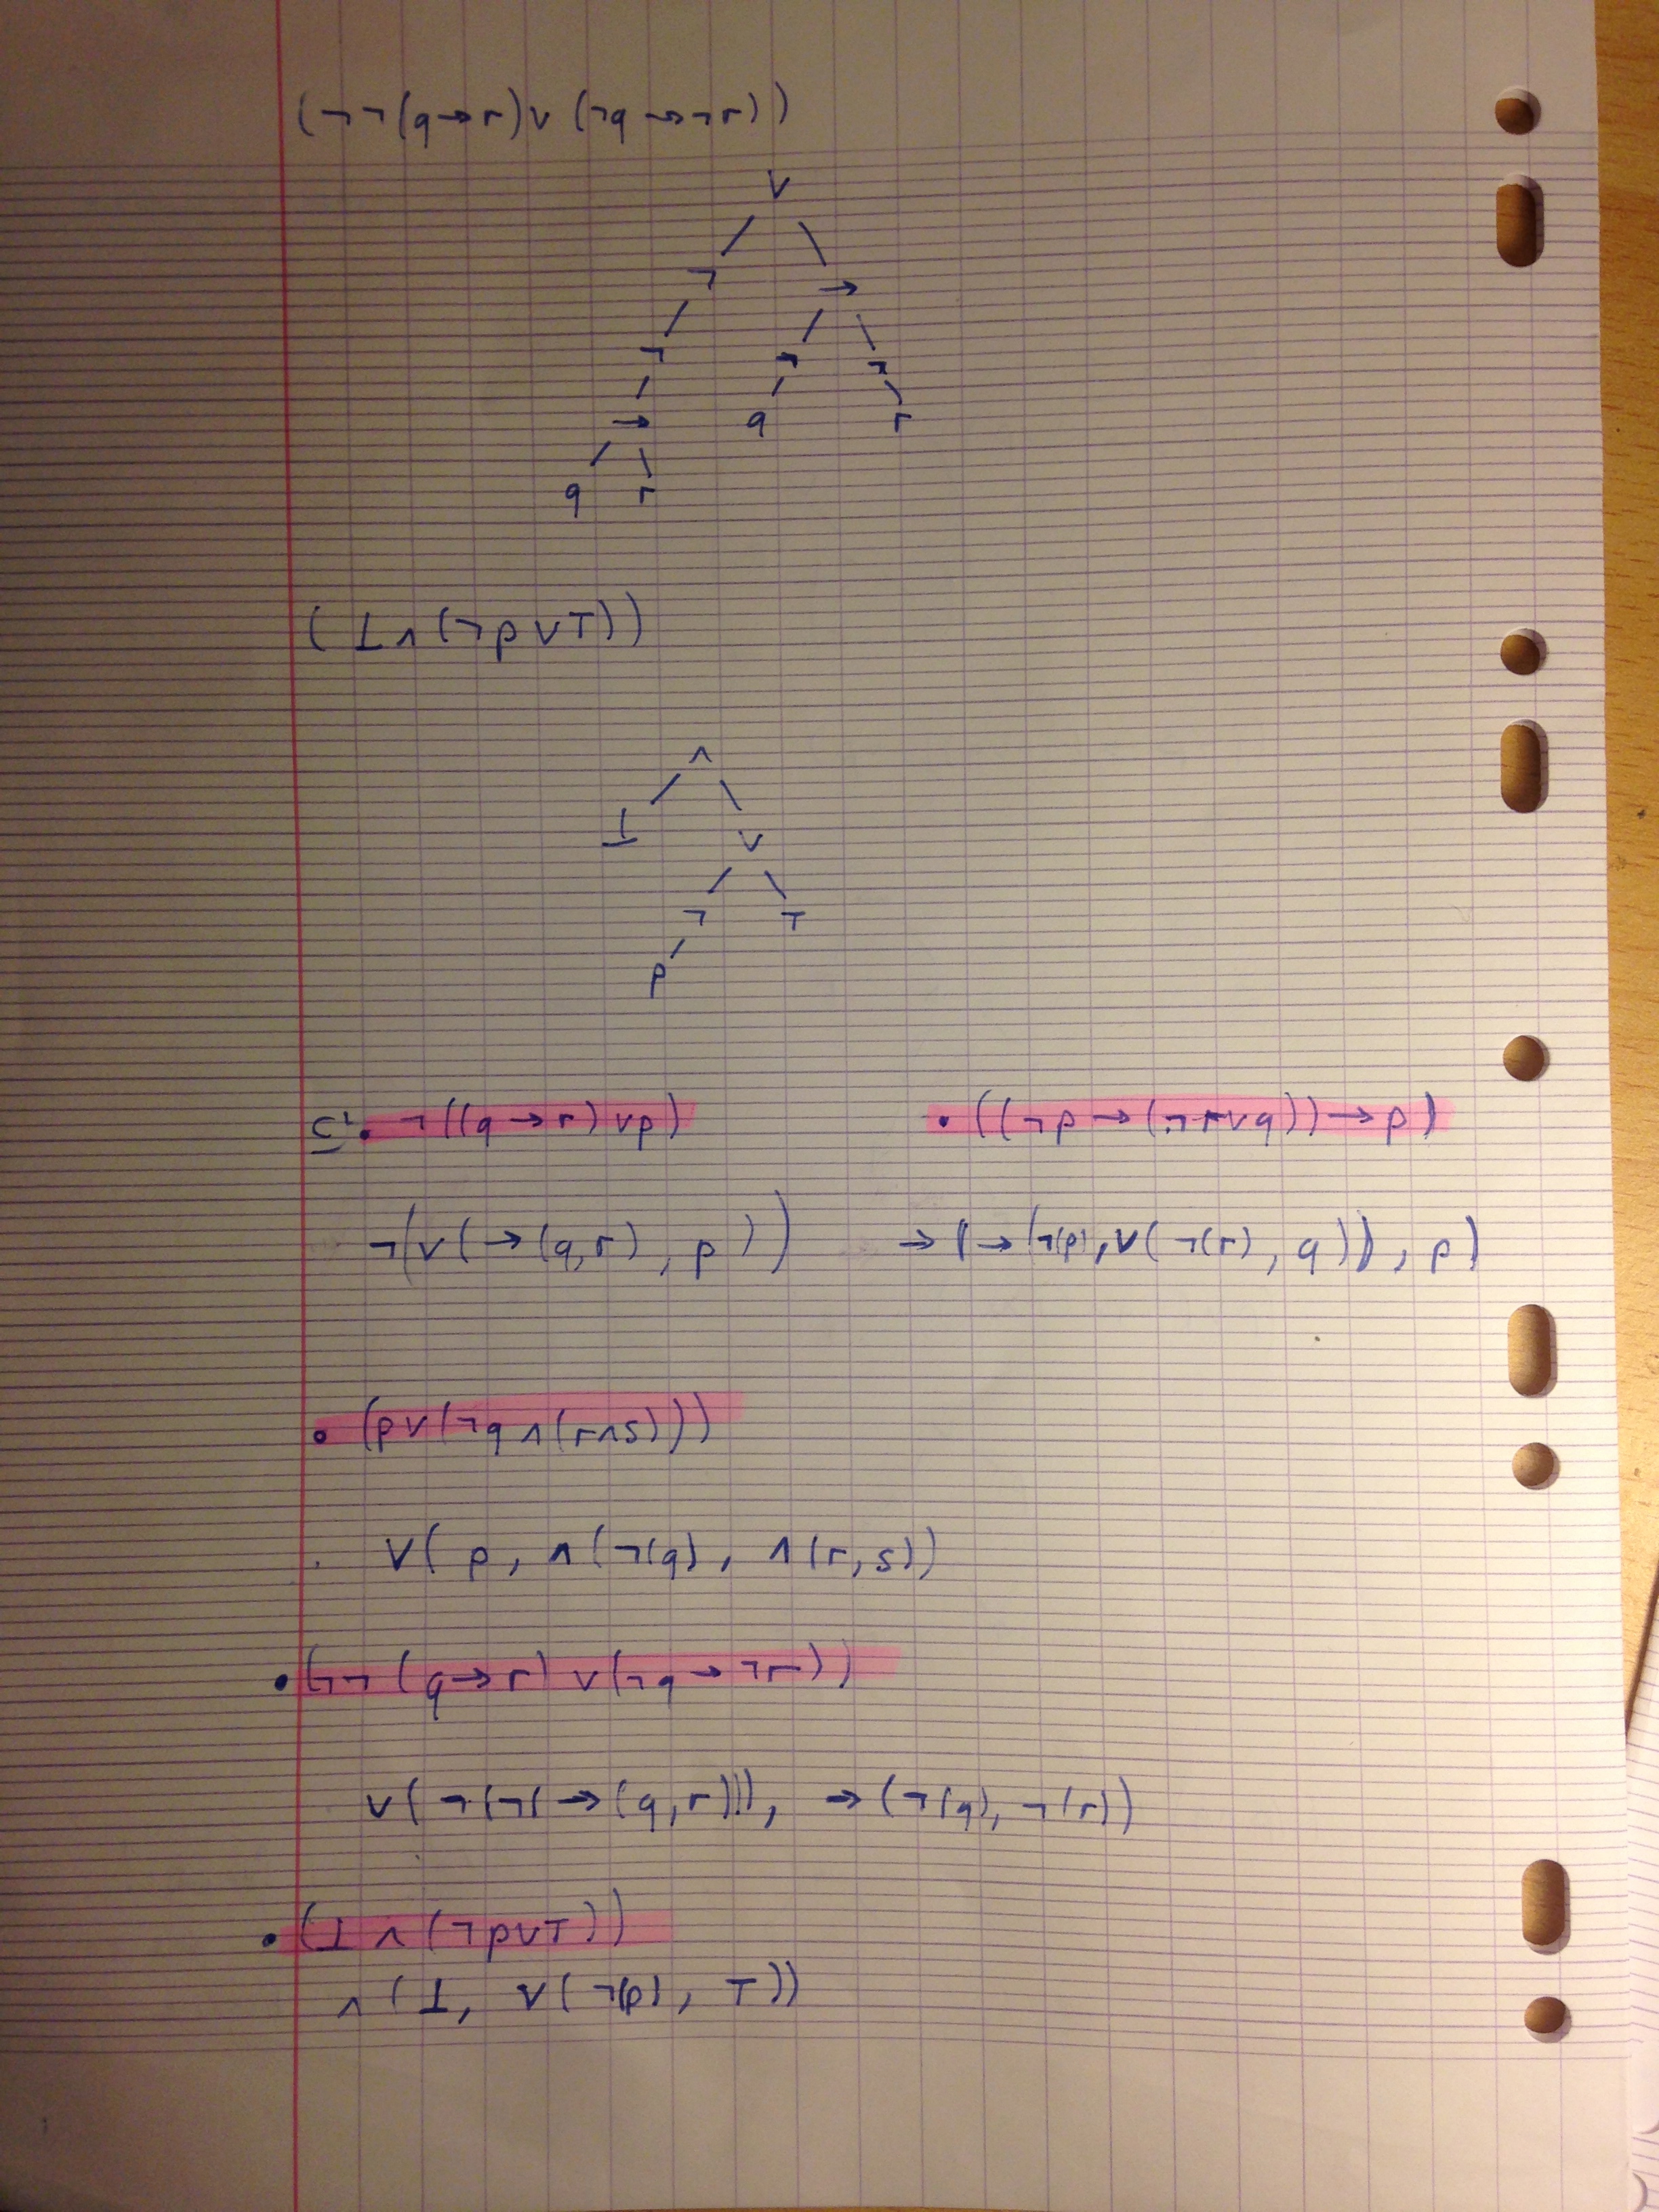 (¬¬(q→r)∨(¬q→¬r))
∨
¬ →
¬ ¬ ¬
→ q r
q r
(⊥∧(¬p∨⊤))
∧
⊥ ∨
¬ ⊤
p
c) • ¬((q→r)∨p) • ((¬p→(¬r∨q))→p)
¬(∨(→(q,r), p)) →(→(¬(p),∨(¬(r), q)), p)
• (p∨(¬q∧(r∧s)))
∨(p, ∧(¬(q), ∧(r,s))
• (¬¬(q→r)∨(¬q→¬r))
∨(¬(¬(→(q,r))), →(¬(q),¬(r))
• (⊥∧(¬p∨⊤))
∧(⊥, ∨(¬(p), ⊤))